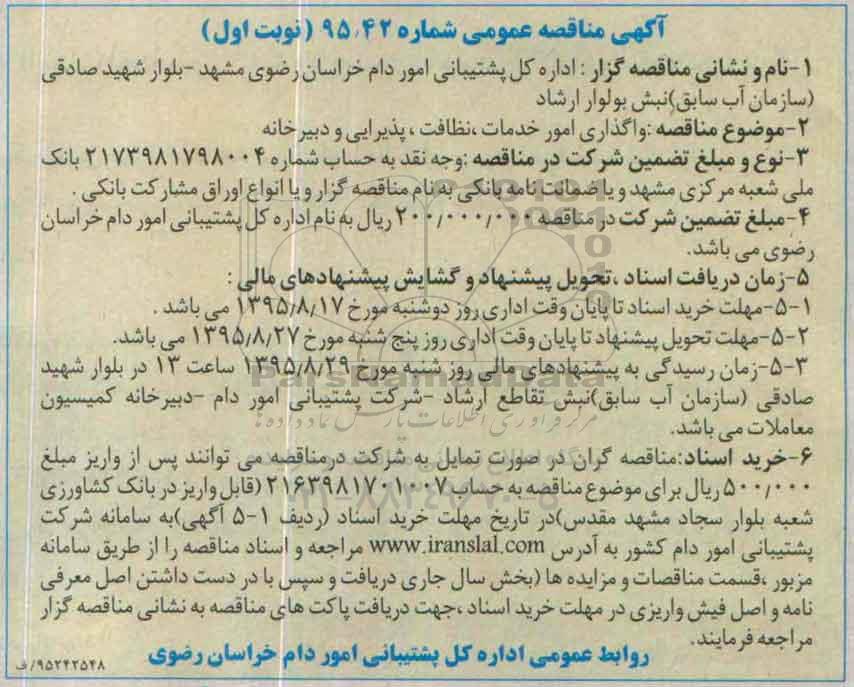 آگهی مناقصه عمومی شماره ۹۵،۴۲ (نوبت اول)
۱-نام و نشانی مناقصه گزار : اداره کل پشتیبانی امور دام خراسان رضوی مشهد -بلوار شهید صادقی
(سازمان آب سابق)نبش بولوار ارشاد
۲-موضوع مناقصه :واگذاری امور خدمات ،نظافت ، پذیرایی و دبیرخانه
۳-نوع و مبلغ تضمین شرکت در مناقصه :وجه نقد به حساب شماره ۲۱۷۳۹۸۱۷۹۸۰۰۴ بانک
ملی شعبه مرکزی مشهد و یا ضمانت نامه بانکی به نام مناقصه گزار و یا انواع اوراق مشارکت بانکی .
۴-مبلغ تضمین شرکت در مناقصه ۲۰۰/۰۰۰/۰۰۰ ریال به نام اداره کل پشتیبانی امور دام خراسان
رضوی می باشد.
۵-زمان دریافت اسناد ،تحویل پیشنهاد و گشایش پیشنهادهای مالی :
۵-۱-مهلت خرید اسناد تا پایان وقت اداری روز دوشنبه مورخ ۱۳۹۵/۸/۱۷ می باشد .
۵-۲-مهلت تحویل پیشنهاد تا پایان وقت اداری روز پنج شنبه مورخ ۱۳۹۵/۸/۲۷ می باشد.
۵-۳-زمان رسیدگی به پیشنهادهای مالی روز شنبه مورخ ۱۳۹۵/۸/۲۹ ساعت ۱۳ در بلوار شهید
صادقی (سازمان آب سابق)نبش تقاطع ارشاد -شرکت پشتیبانی امور دام -دبیرخانه کمیسیون
معاملات می باشد.
۶-خرید اسناد:مناقصه گران در صورت تمایل به شرکت درمناقصه می توانند پس از واریز مبلغ
۵۰۰/۰۰۰ ریال برای موضوع مناقصه به حساب ۲۱۶۳۹۸۱۷۰۱۰۰۷ (قابل واریز در بانک کشاورزی
شعبه بلوار سجاد مشهد مقدس)در تاریخ مهلت خرید اسناد (ردیف ۱-۵ آگهی)به سامانه شرکت
پشتیبانی امور دام کشور به آدرس www.iranslal.com مراجعه و اسناد مناقصه را از طریق سامانه
مزبور ،قسمت مناقصات و مزایده ها (بخش سال جاری دریافت و سپس با در دست داشتن اصل معرفی
نامه و اصل فیش واریزی در مهلت خرید اسناد ،جهت دریافت پاکت های مناقصه به نشانی مناقصه گزار
مراجعه فرمایند.
روابط عمومی اداره کل پشتیبانی امور دام خراسان رضوی
۹۵۲۴۲۵۴۸/ف
ParsNamadData
مرکز فرآوری اطلاعات پارس نماد داده ها